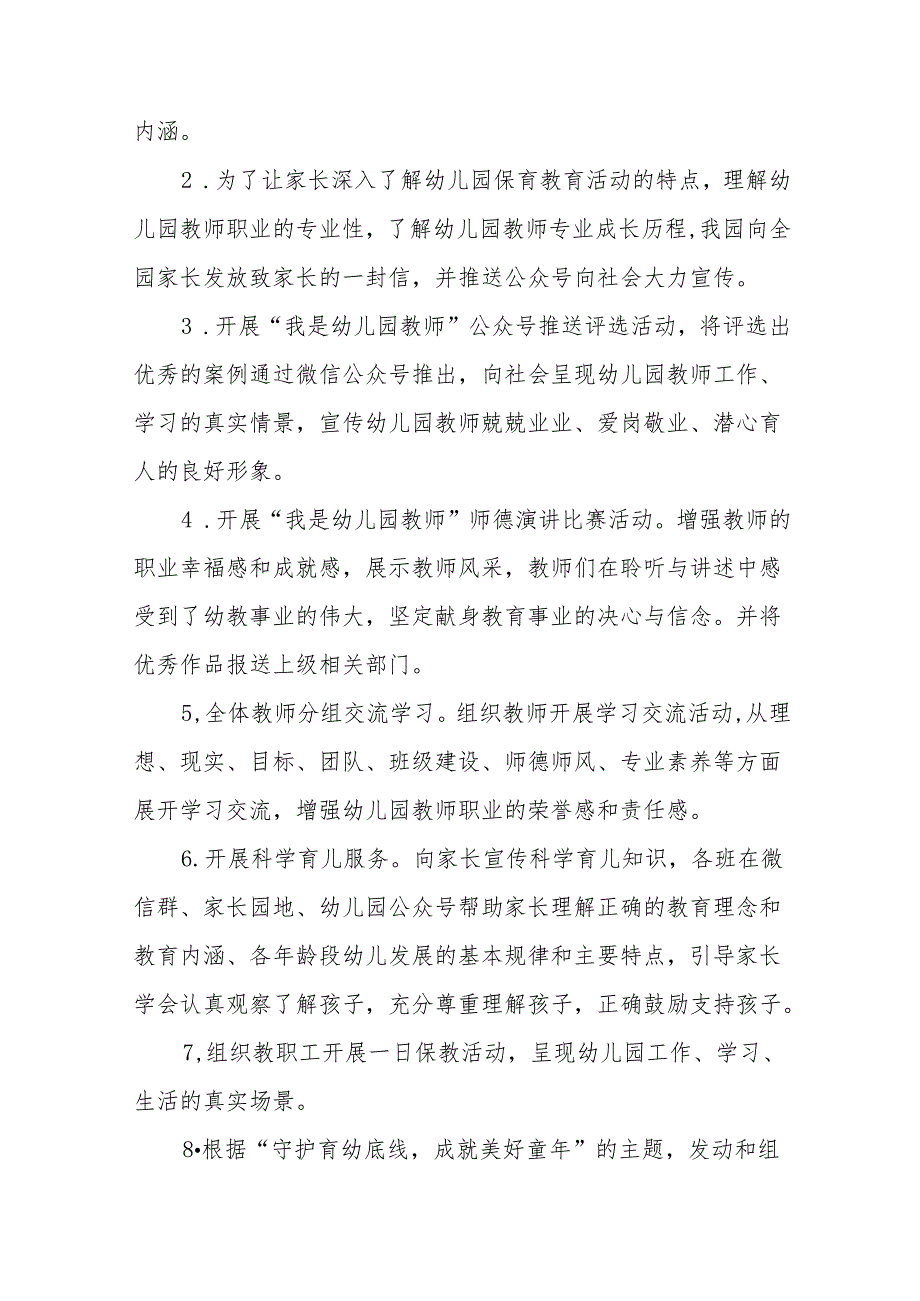 内涵。
2 .为了让家长深入了解幼儿园保育教育活动的特点，理解幼
儿园教师职业的专业性，了解幼儿园教师专业成长历程,我园向全
园家长发放致家长的一封信，并推送公众号向社会大力宣传。
3 .开展“我是幼儿园教师”公众号推送评选活动，将评选出
优秀的案例通过微信公众号推出，向社会呈现幼儿园教师工作、
学习的真实情景，宣传幼儿园教师兢兢业业、爱岗敬业、潜心育
人的良好形象。
4 .开展“我是幼儿园教师”师德演讲比赛活动。增强教师的
职业幸福感和成就感，展示教师风采，教师们在聆听与讲述中感
受到了幼教事业的伟大，坚定献身教育事业的决心与信念。并将
优秀作品报送上级相关部门。
5,全体教师分组交流学习。组织教师开展学习交流活动,从理
想、现实、目标、团队、班级建设、师德师风、专业素养等方面
展开学习交流，增强幼儿园教师职业的荣誉感和责任感。
6.开展科学育儿服务。向家长宣传科学育儿知识，各班在微
信群、家长园地、幼儿园公众号帮助家长理解正确的教育理念和
教育内涵、各年龄段幼儿发展的基本规律和主要特点，引导家长
学会认真观察了解孩子，充分尊重理解孩子，正确鼓励支持孩子。
7,组织教职工开展一日保教活动，呈现幼儿园工作、学习、
生活的真实场景。
8•根据“守护育幼底线，成就美好童年”的主题，发动和组